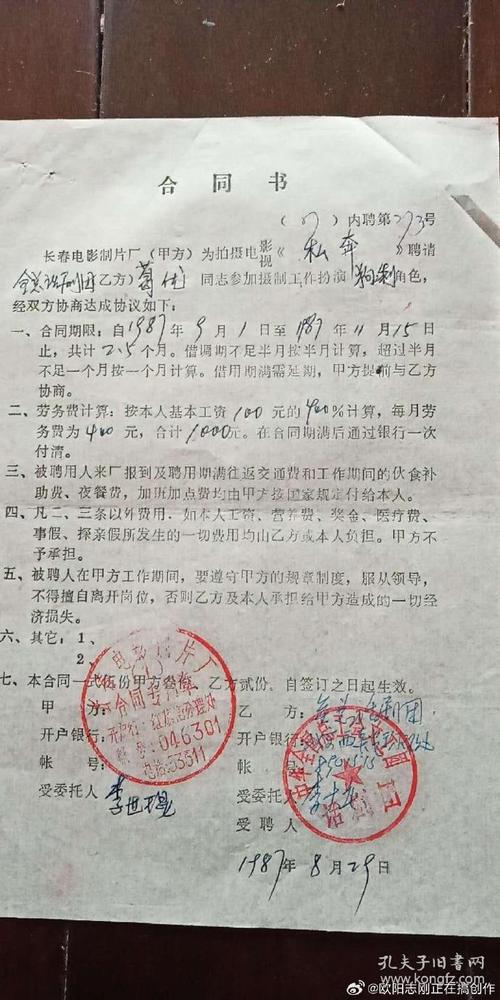 合同书
(87)内聘第273号
长春电影制片厂(甲方)为拍摄电影视《私奔》聘请
全总话剧团乙方)葛优同志参加摄制工作扮演 角色,
经双方协商达成协议如下:
一、合同期限:自1987年9月1日至1987年11月15日
止,共计2.5个月。借调期不足半月按半月计算,超过半月
不足一个月按一个月计算。借用期满需延期,甲方提前与乙方
协商。
二、劳务费计算:按本人基本工资100元的400%计算,每月劳
务费为400元,合计1000元。在合同期满后通过银行一次
付清。
三、被聘用人来厂报到及聘用期满往返交通费和工作期间的伙食补
助费、夜餐费,加班加点费均由甲方按国家规定付给本人。
四、凡二、三条以外费用,如本人工资、营养费、奖金、医疗费、
事假、探亲假所发生的一切费用均由乙方或本人负担。甲方不
予承担。
五、被聘人在甲方工作期间,要遵守甲方的规章制度,服从领导,
不得擅自离开岗位,否则乙方及本人承担给甲方造成的一切经
济损失。
六、其它:1、
2、
七、本合同一式伍份甲方叁份,乙方贰份,自签订之日起生效。
甲方: 乙方:全总话剧团
开户银行: 开户银行:
帐号: 帐号:
受委托人: 受委托人:
受聘人
1987年8月29日
电影制片厂
合同专用章
046301
电话:53311
话剧团
孔夫子旧书网
@欧阳志刚正在搞创作